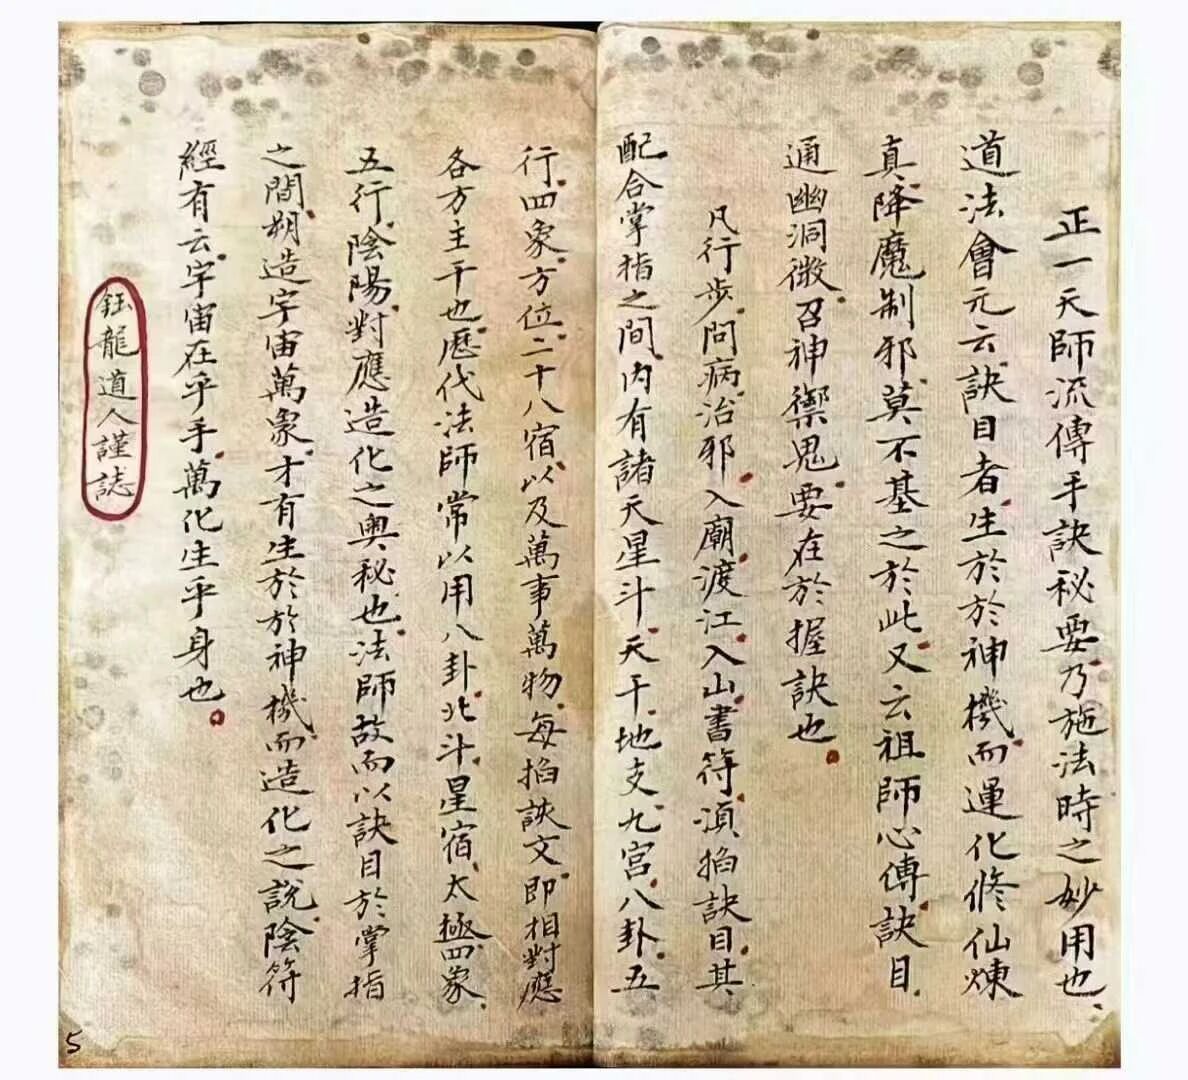 正一天師流傳手訣秘要乃施法時之妙用也、
道法會元云訣目者生於於神機而運化修仙煉
真、降魔制邪、莫不基之於此、又云祖師心傳訣目、
通幽洞微、召神禦鬼、要在於握訣也。
凡行步、問病治邪、入廟、渡江、入山書符、須掐訣目、其
配合掌指之間、內有諸天星斗、天干、地支、九宮、八卦、五
行、四象、方位、二十八宿、以及萬事萬物、每掐訣文、即相對應
各方主干也、歷代法師常以用八卦、北斗、星宿、太極、四象、
五行、陰陽、對應造化之奧秘也、法師故而以訣目於掌指
之間、朔造宇宙萬象、才有生於於神機、而造化之說、陰符
經有云、宇宙在乎手、萬化生乎身也。
鈺龍道人謹誌
5